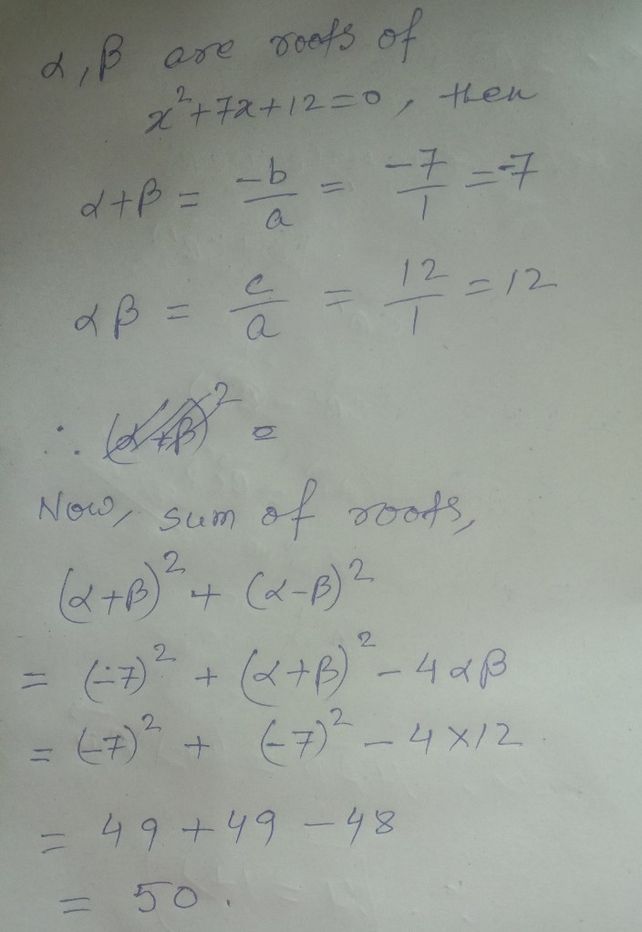 α, β are roots of
x²+7x+12=0, then
α+β = -b/a = -7/1 =-7
αβ = c/a = 12/1 =12
∴ (α+β)² =
Now, sum of roots,
(α+β)² + (α-β)²
= (-7)² + (α+β)² - 4αβ
= (-7)² + (-7)² - 4×12
= 49+49-48
= 50.